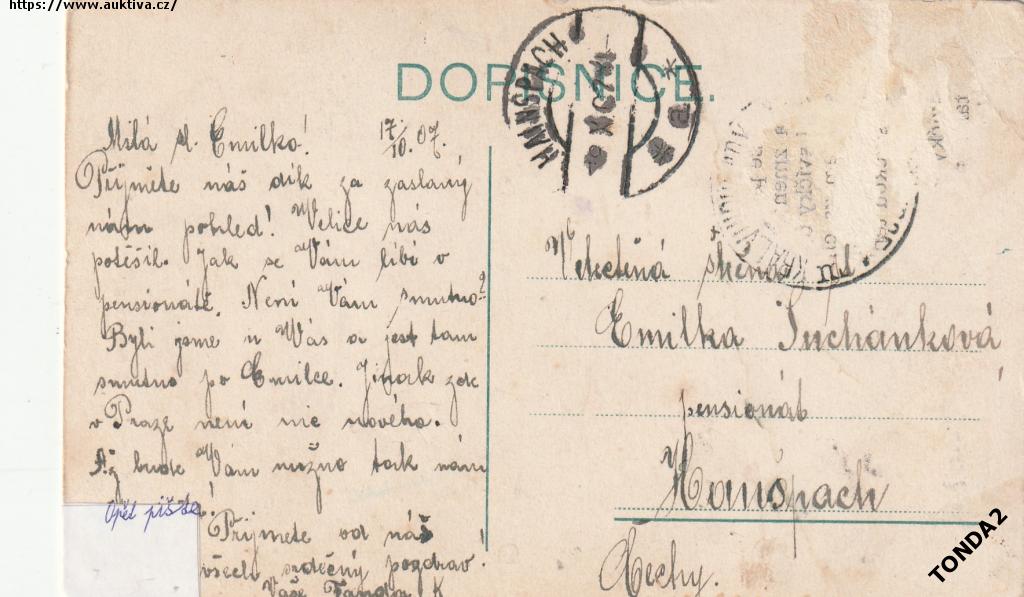 https://www.auktiva.cz/
DOPISNICE.
HAINSPACH
Milá sl. Emilko!
17/10.07.
Přijměte náš dík za zaslaný
nám pohled! Velice nás
potěšil. Jak se Vám líbí v
pensionátě. Není Vám smutno?
Byli jsme u Vás a jest tam
smutno po Emilce. Jinak zde
v Praze není nic nového.
Až bude Vám možno tak nám
Opět pište!
Přijmete od nás
všech srdečný pozdrav!
Vaše K
Velectěná slečna
Emilka Suchánková
pensionát
Hanšpach
Čechy.
TONDA2